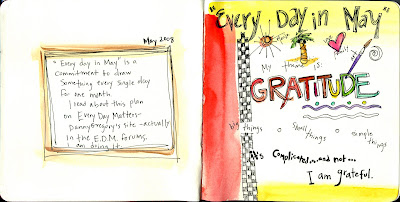 May 2008
"Every day in May" is a
commitment to draw
something every single day
for one month.
I read about this plan
on Every Day Matters-
Danny Gregory's site - actually
in the E.D.M. forums.
I am doing it.
"Every Day in May"
My theme is:
GRATITUDE
big things
small things
simple things
Complicated...and not...
I am grateful.